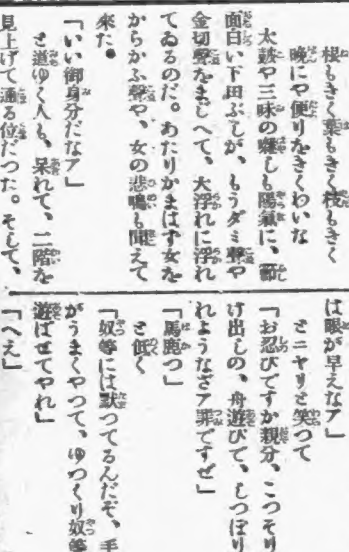 根もきく葉もきく枝もきく
晩にや便りをきくわいな
太鼓や三味の囃しも陽氣に、節
面白い下田ぶしが、もうダミ聲や
金切聲をまじへて、大浮れに浮れ
てゐるのだ。あたりかまはず女を
からかふ聲や、女の悲鳴も聞えて
來た。
「いい御身分だなア」
と道ゆく人も、呆れて、二階を
見上げて通る位だつた。そして、
は眼が早えなア」
とニヤリと笑つて
「お忍びですか親分、こつそり
け出しの、舟遊びで、しつぽり
れようなざア罪ですぜ」
「馬鹿つ」
と低く
「奴等には默つてるんだぞ、手
がうまくやつて、ゆつくり奴等
遊ばせてやれ」
「へえ」